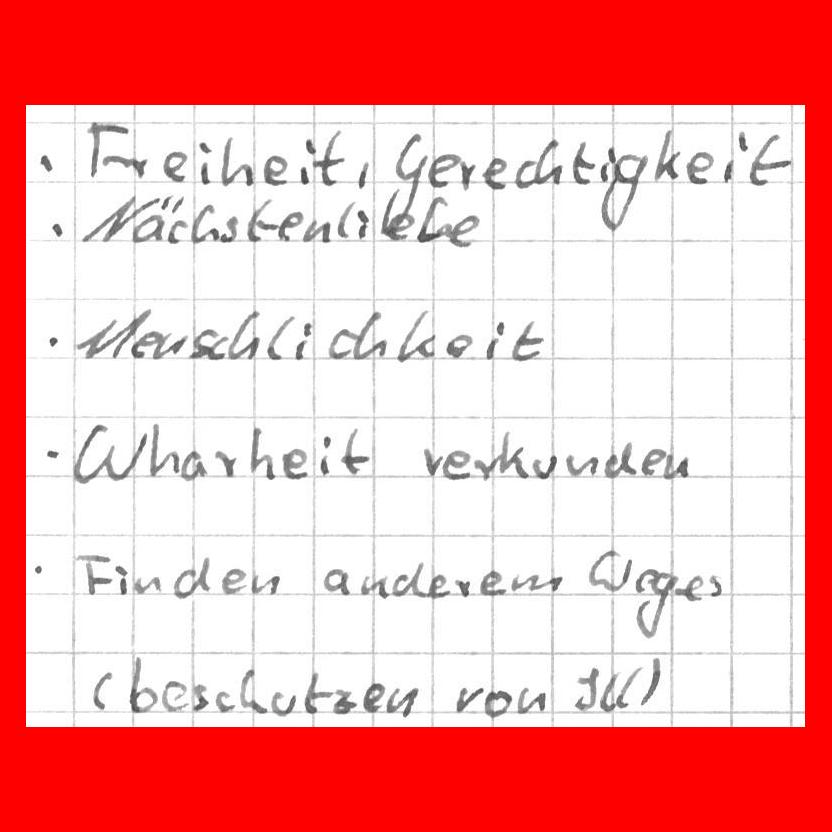 • Freiheit, Gerechtigkeit
• Nächstenliebe
• Menschlichkeit
• Wharheit verkunden
• Finden anderem Weges
(beschutzen von